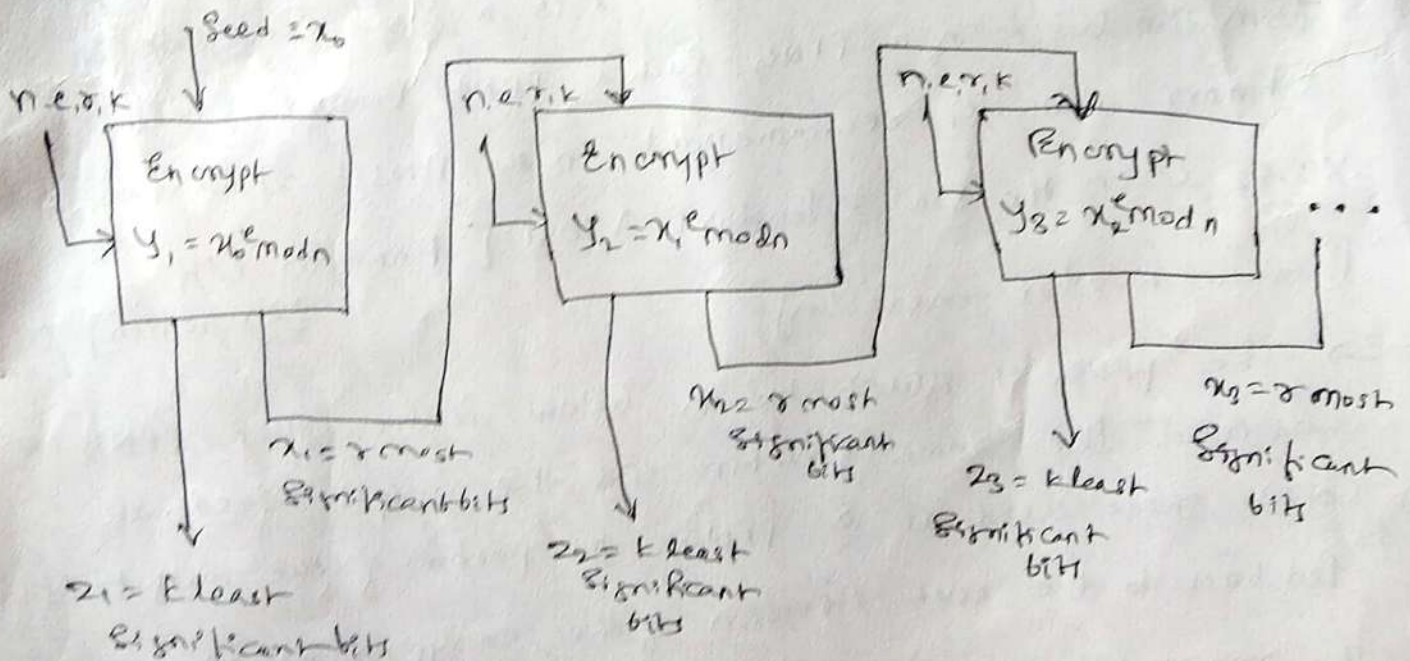 Seed = x₀
n,e,r,k
Encrypt
y₁ = x₀ᵉ mod n
x₁ = r most
significant bits
z₁ = k least
significant bits
n,e,r,k
Encrypt
y₂ = x₁ᵉ mod n
x₂ = r most
significant
bits
z₂ = k least
significant
bits
n,e,r,k
Encrypt
y₃ = x₂ᵉ mod n
...
x₃ = r most
significant
bits
z₃ = k least
significant
bits